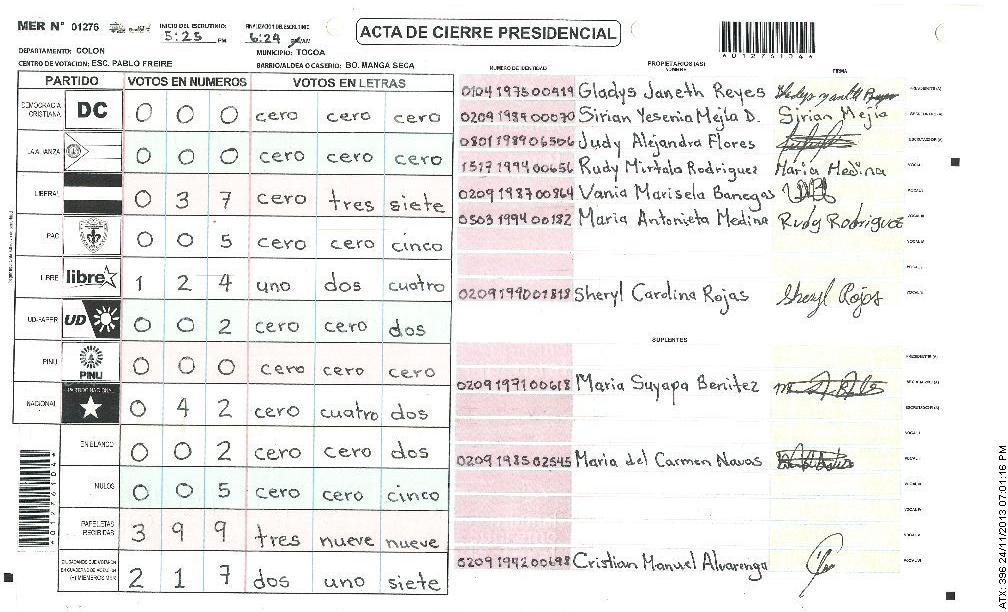 MER N° 01276
INICIO DEL ESCRUTINIO: 5:25 PM
FINALIZACION DEL ESCRUTINIO: 6:24
ACTA DE CIERRE PRESIDENCIAL
DEPARTAMENTO: COLON
MUNICIPIO: TOCOA
CENTRO DE VOTACION: ESC. PABLO FREIRE
BARRIO/ALDEA O CASERIO: BO. MANGA SECA
PARTIDO VOTOS EN NUMEROS VOTOS EN LETRAS
DEMOCRACIA CRISTIANA DC 0 0 0 cero cero cero
LA ALIANZA 0 0 0 cero cero cero
LIBERAL 0 3 7 cero tres siete
PAC 0 0 5 cero cero cinco
LIBRE libre 1 2 4 uno dos cuatro
UD-FAPER UD 0 0 2 cero cero dos
PINU PINU 0 0 0 cero cero cero
NACIONAL PARTIDO NACIONAL 0 4 2 cero cuatro dos
EN BLANCO 0 0 2 cero cero dos
NULOS 0 0 5 cero cero cinco
PAPELETAS RECIBIDAS 3 9 9 tres nueve nueve
2 1 7 dos uno siete
NUMERO DE IDENTIDAD
PROPIETARIOS (AS)
NOMBRE
FIRMA
0104197500419 Gladys Janeth Reyes
0209198900070 Sirian Yesenia Mejía D. Sirian Mejia
0801198906506 Judy Alejandra Flores
1517199400656 Rudy Mirtala Rodriguez Maria Medina
0209198700864 Vania Marisela Banegas
0503199400182 Maria Antonieta Medina Rudy Rodriguez
0209199001818 Sheryl Carolina Rojas Sheryl Rojas
SUPLENTES
0209197100618 Maria Suyapa Benitez
0209198502545 Maria del Carmen Navas
0209199200698 Cristian Manuel Alvarenga
ATX: 396 24/11/2013 07:01:16 PM